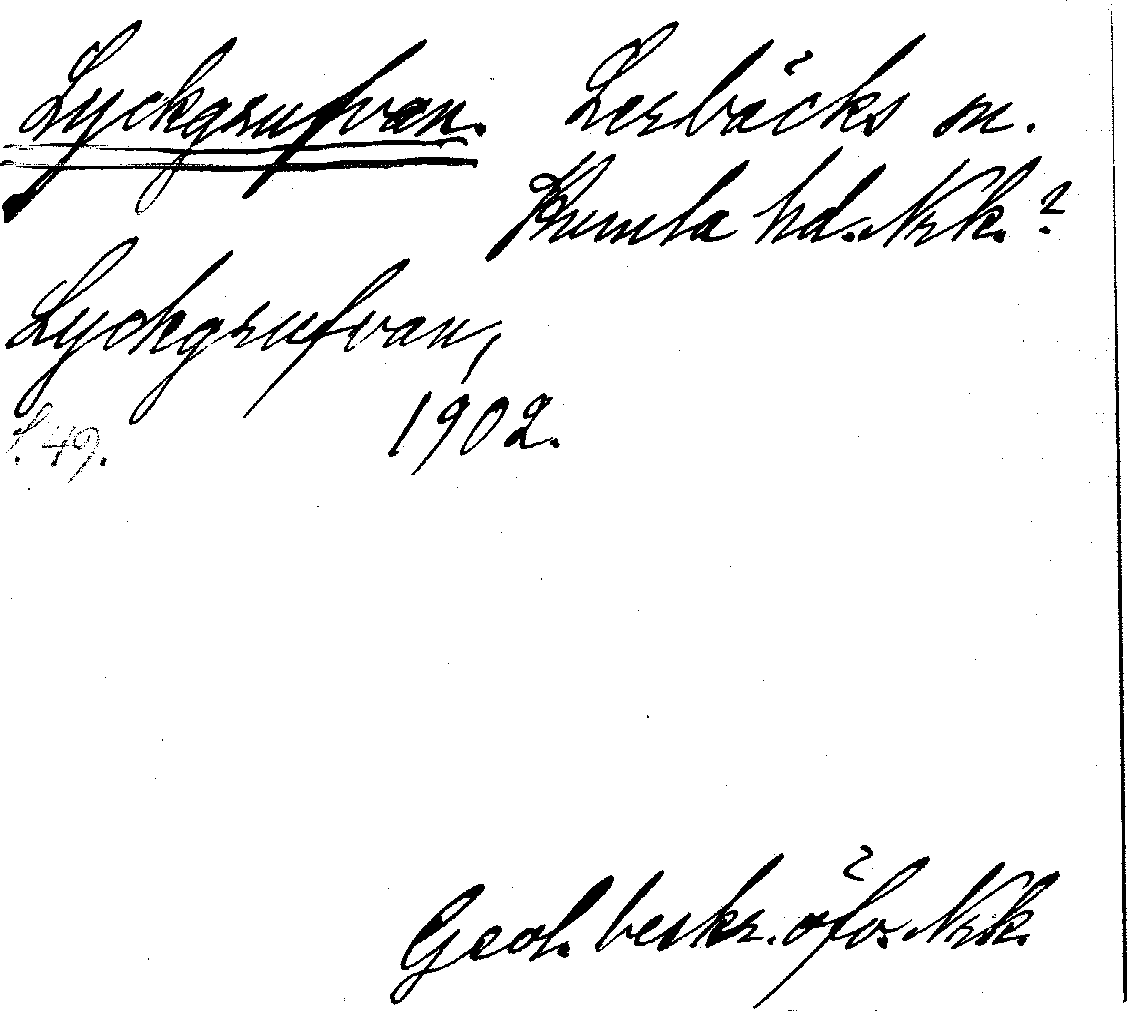 Lyckgrufvan. Lerbäcks sn.
Kumla hd. Nrk. ?
Lyckgrufvan,
s. 49. 1902.
Geol. beskr. öfv. Nrk.